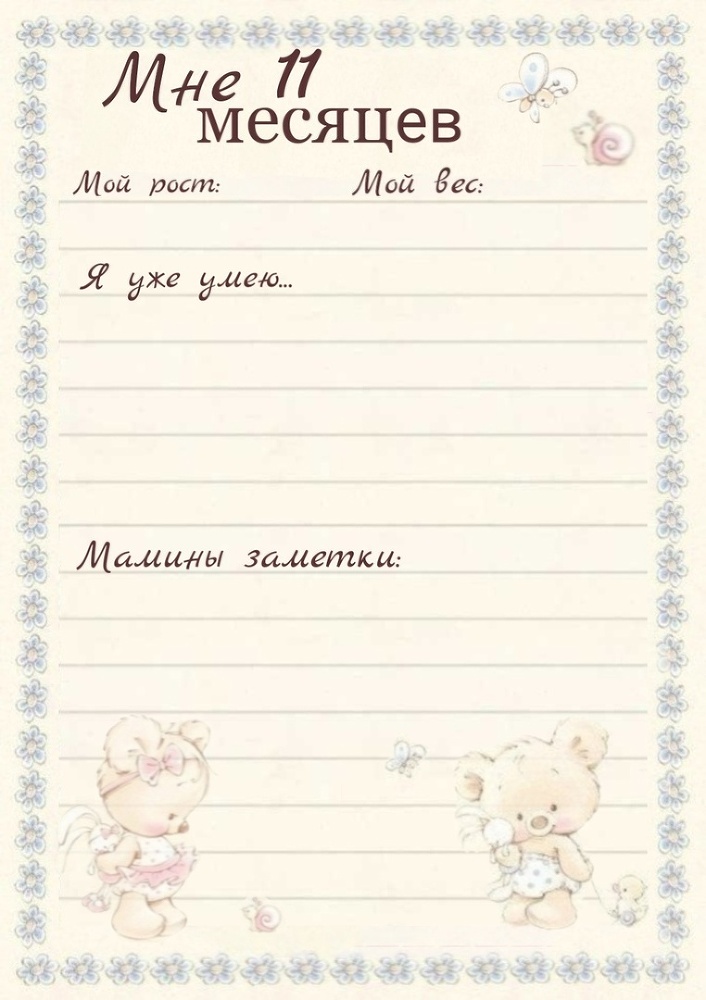 Мне 11
месяцев
Мой рост: Мой вес:
Я уже умею...
Мамины заметки: